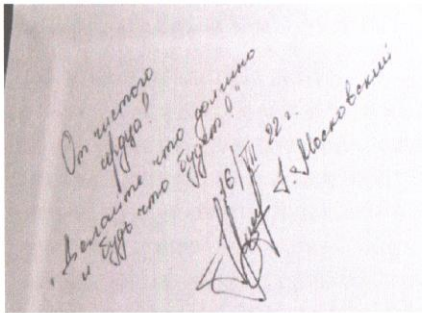 От чистого
сердца!
„Делайте что должно
и будь что будет!“
16/VII 22 г.
г. Московский